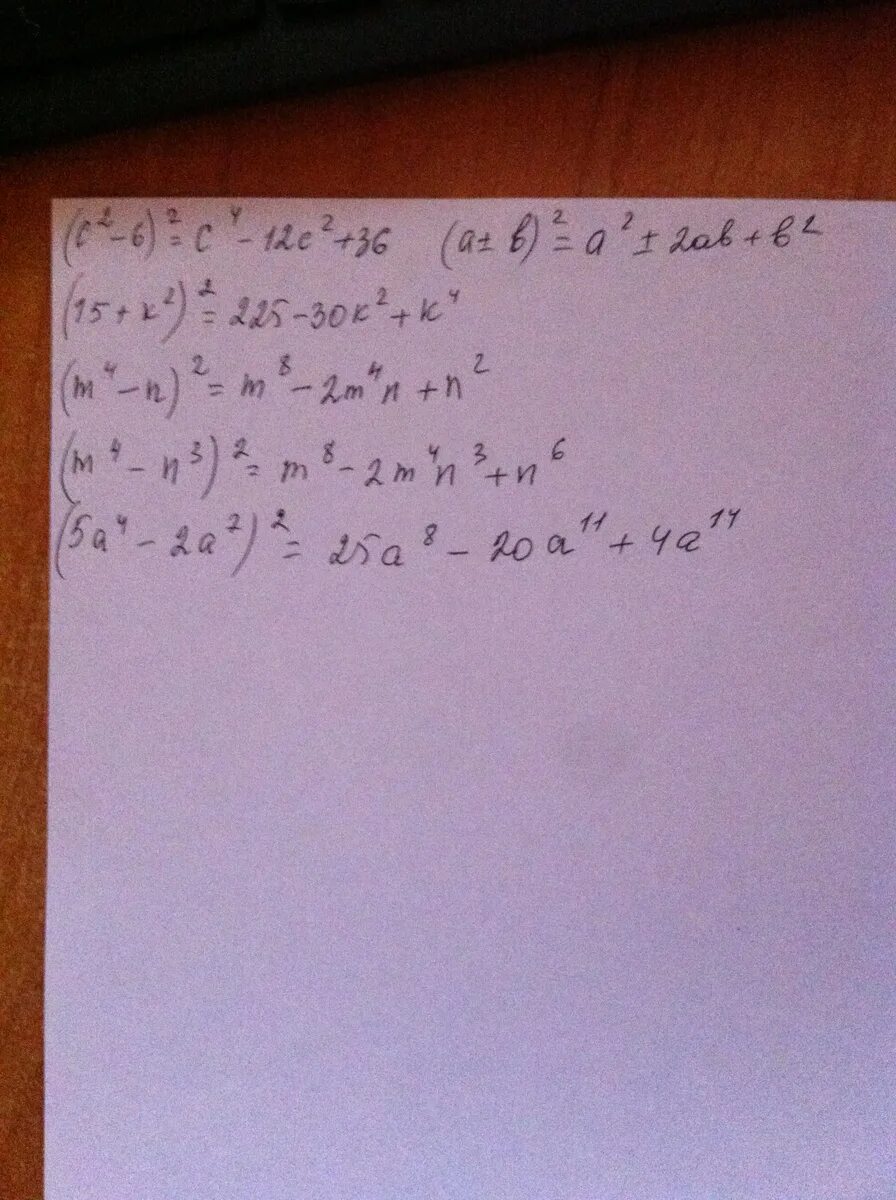 (c²-6)²=c⁴-12c²+36 (a±b)²=a²±2ab+b²
(15+k²)²=225-30k²+k⁴
(m⁴-n)²=m⁸-2m⁴n+n²
(m⁴-n³)²=m⁸-2m⁴n³+n⁶
(5a⁴-2a⁷)²=25a⁸-20a¹¹+4a¹⁴